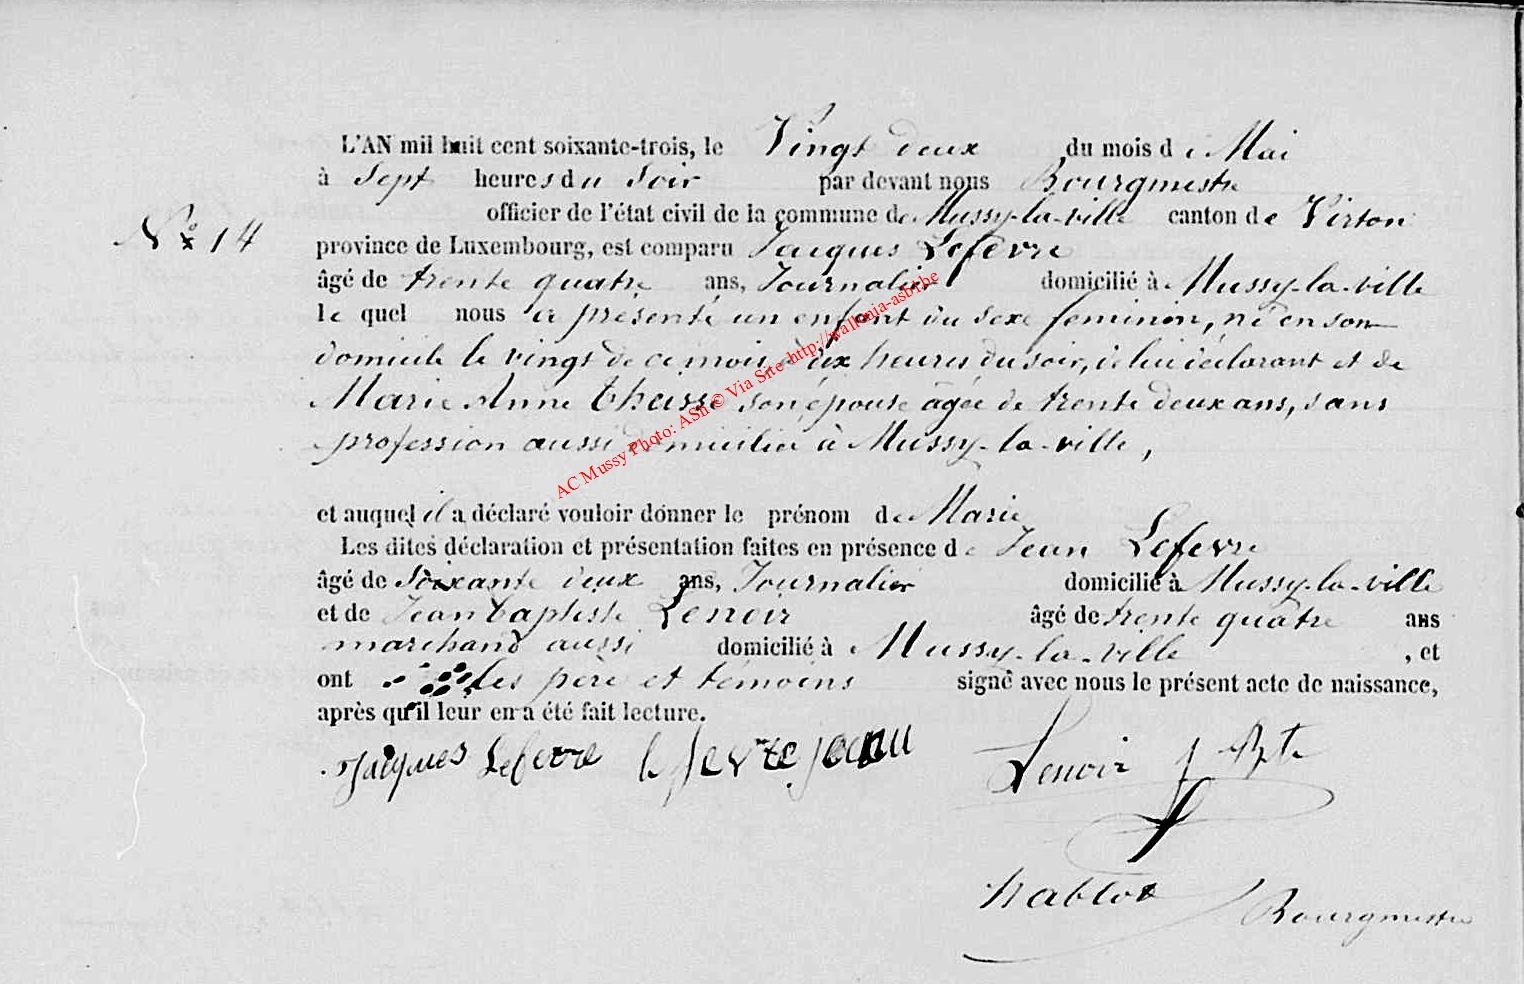 L'AN mil huit cent soixante-trois, le Vingt deux du mois de Mai
à Sept heures du Soir par devant nous Bourgmestre
officier de l'état civil de la commune de Mussy-la-ville canton de Virton
No 14
province de Luxembourg, est comparu Jacques Lefèvre
âgé de trente quatre ans, Journalier domicilié à Mussy-la-ville
le quel nous a présenté un enfant du sexe feminin, né en son
domicile le vingt de ce mois, à dix heures du soir, de lui déclarant et de
Marie Anne Thasse son épouse âgée de trente deux ans, sans
profession aussi domiciliée à Mussy-la-ville,
et auquel il a déclaré vouloir donner le prénom de Marie
Les dites déclaration et présentation faites en présence de Jean Lefevre
âgé de Soixante deux ans, Journalier domicilié à Mussy-la-ville
et de Jean Baptiste Lenoir âgé de trente quatre ans
marchand aussi domicilié à Mussy-la-ville, et
ont les père et témoins signé avec nous le présent acte de naissance,
après qu'il leur en a été fait lecture.
Jacques Lefevre lefevre jean Lenoir J Bte
Bourgmestre
AC Mussy Photo: ASn © Via Site http://wallonia-asbl.be